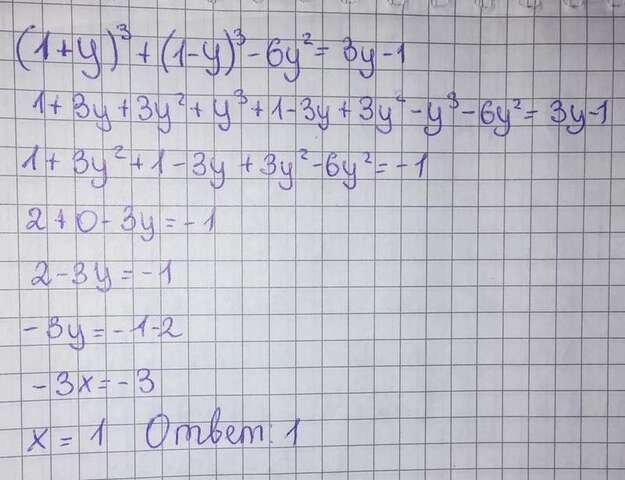 (1+y)³+(1-y)³-6y²=3y-1
1+3y+3y²+y³+1-3y+3y²-y³-6y²=3y-1
1+3y²+1-3y+3y²-6y²=-1
2+0-3y=-1
2-3y=-1
-3y=-1-2
-3x=-3
x=1 Ответ: 1